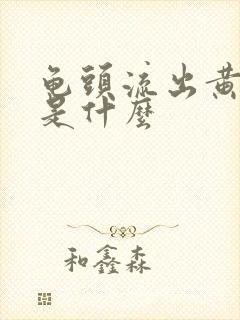 龟頭流出黄
是什麼
和鑫森